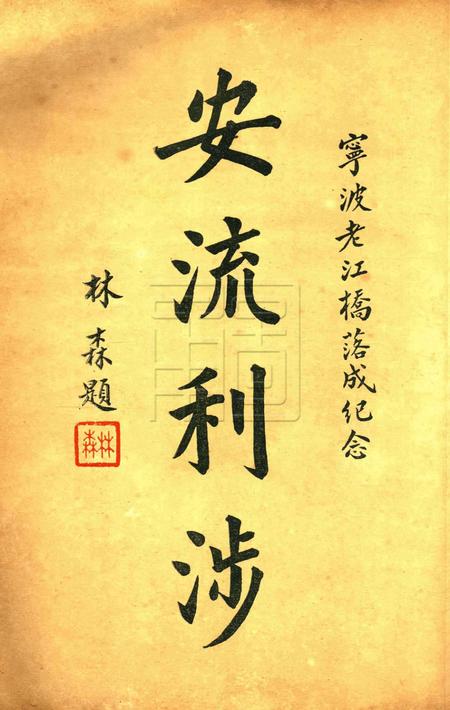 寧波老江橋落成紀念
安流利涉
林森題
林森